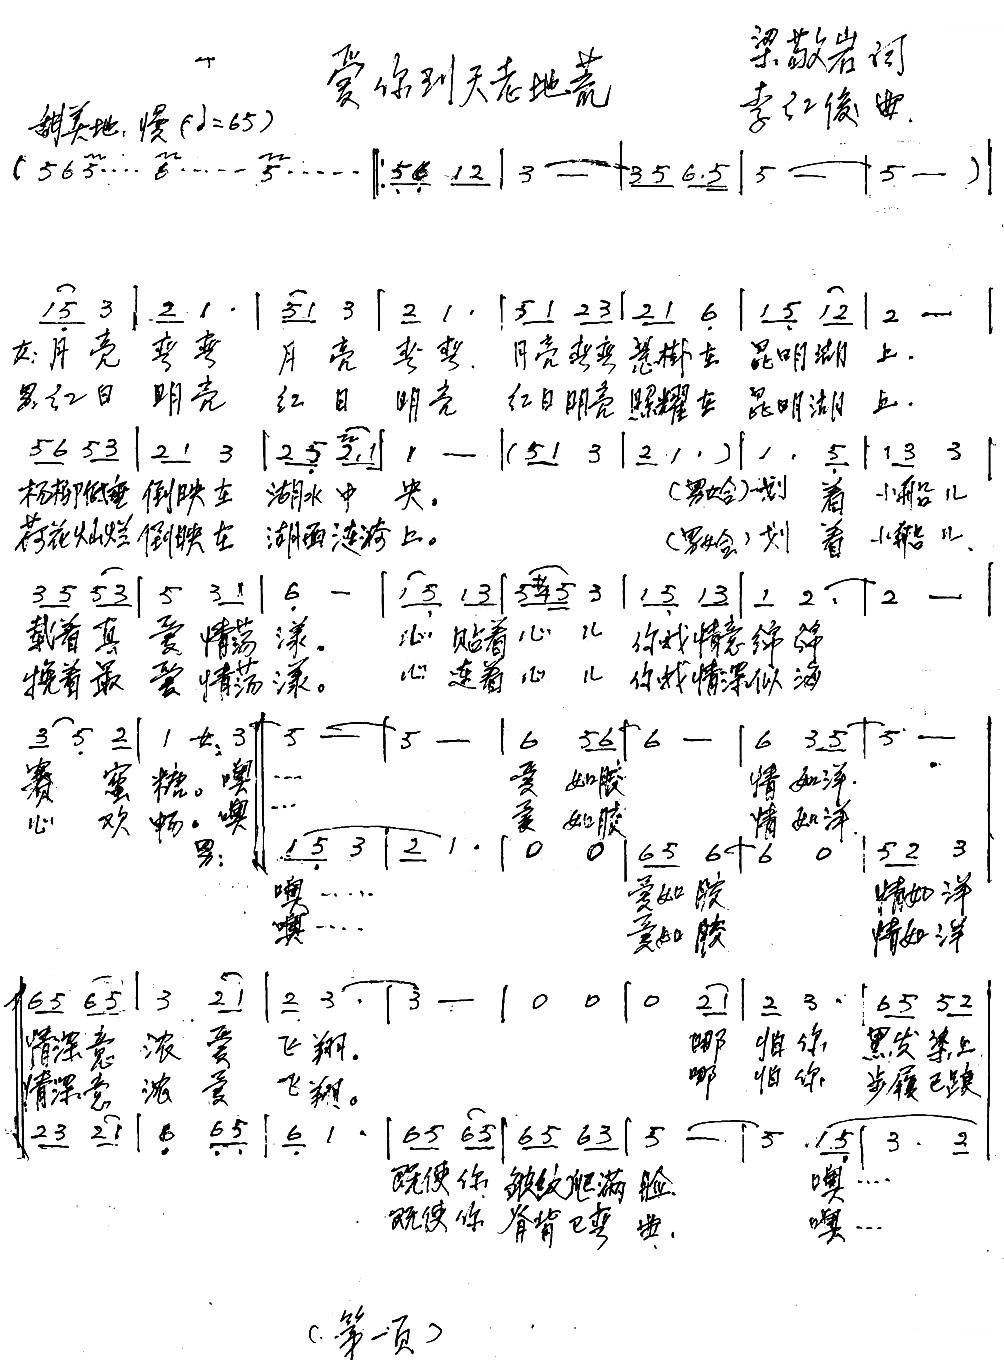 爱你到天老地荒
梁敬岩词
李红俊曲.
甜美地.慢(♩=65)
(565…… 6…… 5…… ‖: 56 12 | 3 — | 35 6.5 | 5 — | 5 — )|
15 3 | 2 1 · | 51 3 | 2 1 · | 51 23 | 21 6 | 15 12 | 2 —
女:月亮 弯弯 月亮 弯弯. 月亮弯弯 悬掛在 昆明湖 上.
男:红日 明亮 红日 明亮 红日明亮 照耀在 昆明湖 上.
56 53 | 21 3 | 25 2.1 | 1 — | (51 3 | 21 · ) | 1 · 5 | 13 3
杨柳低垂 倒映在 湖水中 央。 (男女合)划 着 小船儿
荷花灿烂 倒映在 湖面涟漪 上。 (男女合)划 着 小船儿.
35 53 | 5 31 | 6 — | 15 13 | 5#45 3 | 15 13 | 1 2 · | 2 —
载着真 爱 情荡 漾。 心 贴着 心 儿 你我情意 绵 绵
挽着最 爱 情荡 漾。 心 连着 心 儿 你我情深 似 海
3 5 2 | 1 女:3 ‖ 5 — | 5 — | 6 56 | 6 — | 6 35 | 5 —
赛 蜜 糖。噢 …… 爱 如胶 情 如洋.
心 欢 畅。噢 …… 爱 如胶 情 如洋.
男: 15 3 | 2 1 · | 0 0 | 65 6 | 6 0 | 52 3
噢…… 爱如胶 情如洋
噢…… 爱如胶 情如洋
65 65 | 3 21 | 2 3 · | 3 — | 0 0 | 0 21 | 2 3 · | 65 52
情深意 浓 爱 飞 翔。 哪 怕 你 黑发 染上
情深意 浓 爱 飞 翔。 哪 怕 你 步履 已踉
23 21 | 6 65 | 6 1 · | 65 65 | 65 63 | 5 — | 5 · 15 | 3 · 2
既使你 皱纹爬满 脸. 噢……
既使你 脊背已弯 曲. 噢……
(第一页)